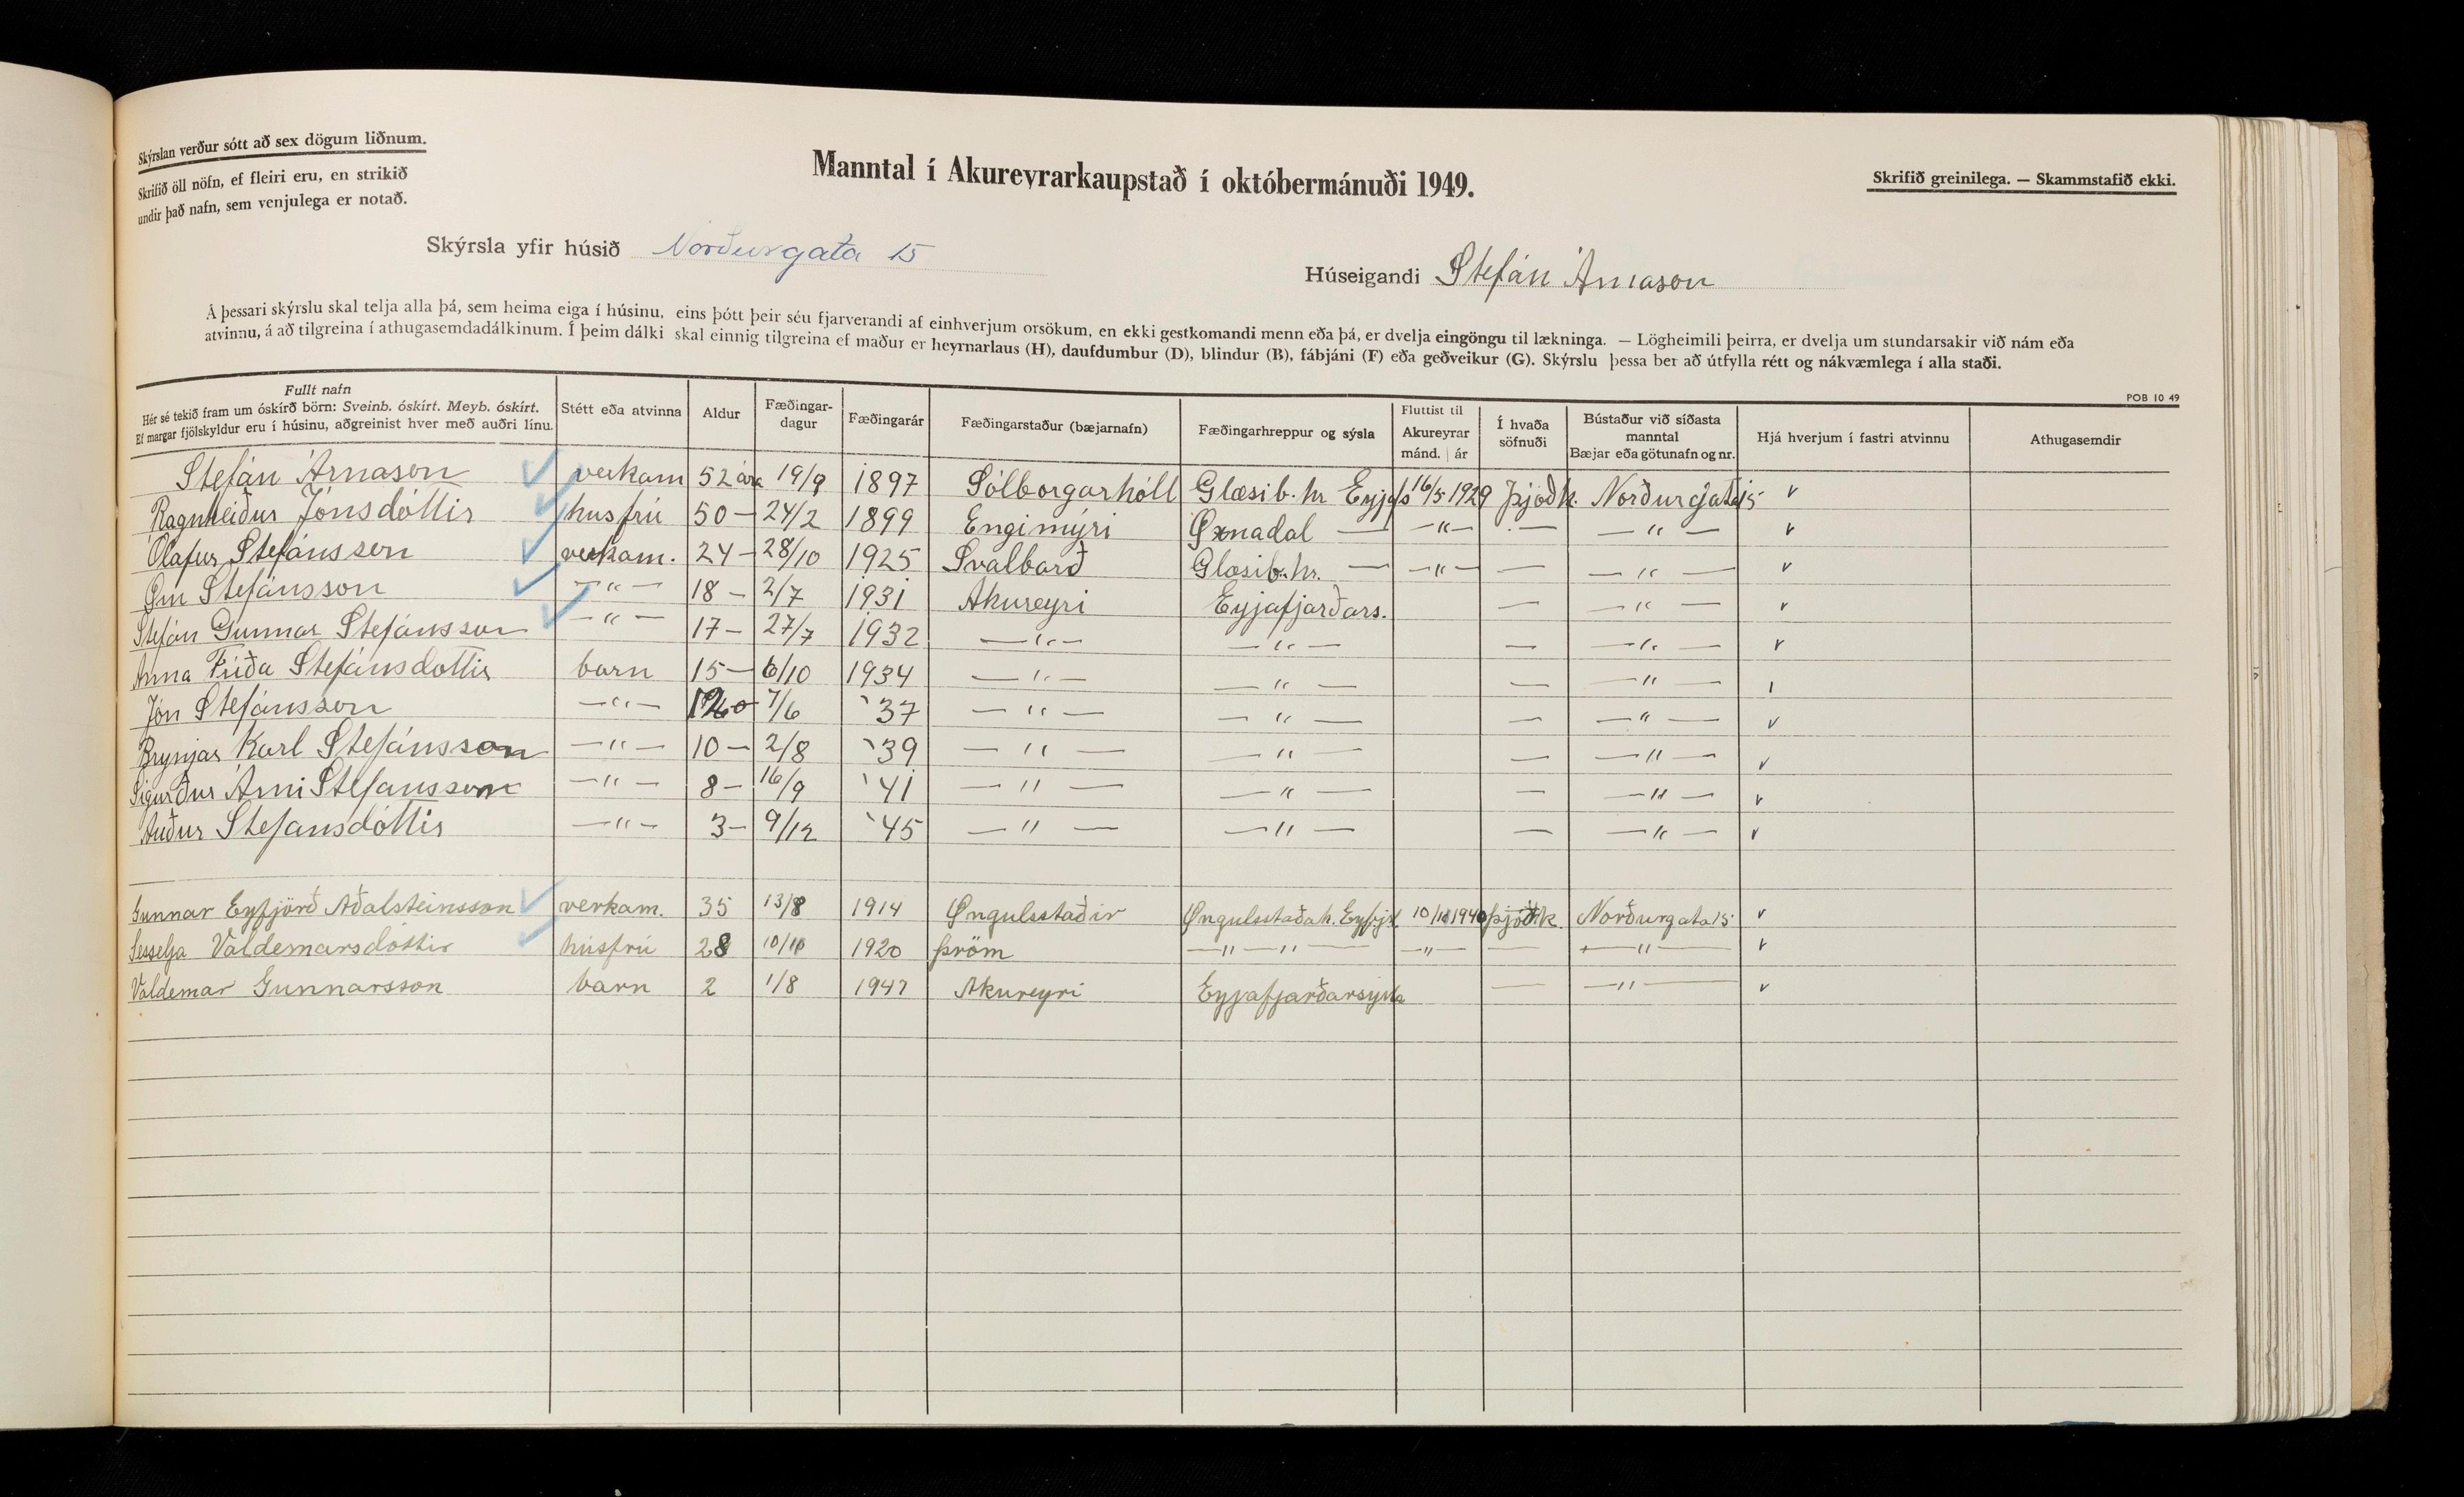 Skýrslan verður sótt að sex dögum liðnum.
Skrifið öll nöfn, ef fleiri eru, en strikið
undir það nafn, sem venjulega er notað.
Manntal í Akureyrarkaupstað í októbermánuði 1949.
Skrifið greinilega. — Skammstafið ekki.
Skýrsla yfir húsið Norðurgata 15
Húseigandi Stefán Árnason
Á þessari skýrslu skal telja alla þá, sem heima eiga í húsinu, eins þótt þeir séu fjarverandi af einhverjum orsökum, en ekki gestkomandi menn eða þá, er dvelja eingöngu til lækninga. — Lögheimili þeirra, er dvelja um stundarsakir við nám eða
atvinnu, á að tilgreina í athugasemdadálkinum. Í þeim dálki skal einnig tilgreina ef maður er heyrnarlaus (H), daufdumbur (D), blindur (B), fábjáni (F) eða geðveikur (G). Skýrslu þessa ber að útfylla rétt og nákvæmlega í alla staði.
POB 10 49
Fullt nafn
Hér sé tekið fram um óskírð börn: Sveinb. óskírt. Meyb. óskírt.
Ef margar fjölskyldur eru í húsinu, aðgreinist hver með auðri línu.
Stétt eða atvinna
Aldur
Fæðingar-
dagur
Fæðingarár
Fæðingarstaður (bæjarnafn)
Fæðingarhreppur og sýsla
Fluttist til
Akureyrar
mánd. ár
Í hvaða
söfnuði
Bústaður við síðasta
manntal
Bæjar eða götunafn og nr.
Hjá hverjum í fastri atvinnu
Athugasemdir
Stefán Árnason verkam 52 ára 19/9 1897 Sólborgarhóll Glæsib. hr Eyjafs 16/5 1929 Þjóðk. Norðurgata 15 v
Ragnheiður Jónsdóttir húsfrú 50 — 24/2 1899 Engimýri Øxnadal — —"— — —"— v
Ólafur Stefánsson verkam. 24 — 28/10 1925 Svalbarð Glæsib. hr. — —"— — —"— v
Ørn Stefánsson —"— 18 — 2/7 1931 Akureyri Eyjafjarðars. — —"— v
Stefán Gunnar Stefánsson —"— 17 — 27/7 1932 —"— —"— — —"— v
Anna Fríða Stefánsdottir barn 15 — 6/10 1934 —"— —"— — —"—
Jón Stefánsson —"— 7/6 '37 —"— —"— — —"— v
Brynjar Karl Stefánsson —"— 10 — 2/8 '39 —"— —"— — —"— v
Sigurður Árni Stefansson —"— 8 — 16/9 '41 —"— —"— — —"— v
Auður Stefansdóttir —"— 3 — 9/12 '45 —"— —"— — —"— v
Gunnar Eyfjörð Aðalsteinsson verkam. 35 13/8 1914 Øngulsstaðir Øngulsstaðah. Eyfj. 10/10 1940 Þjóðk. Norðurgata 15 v
Sesselja Valdemarsdóttir húsfrú 28 10/11 1920 Þröm —"—"— —"— — —"— v
Valdemar Gunnarsson barn 2 1/8 1947 Akureyri Eyjafjarðarsýsla — —"— v